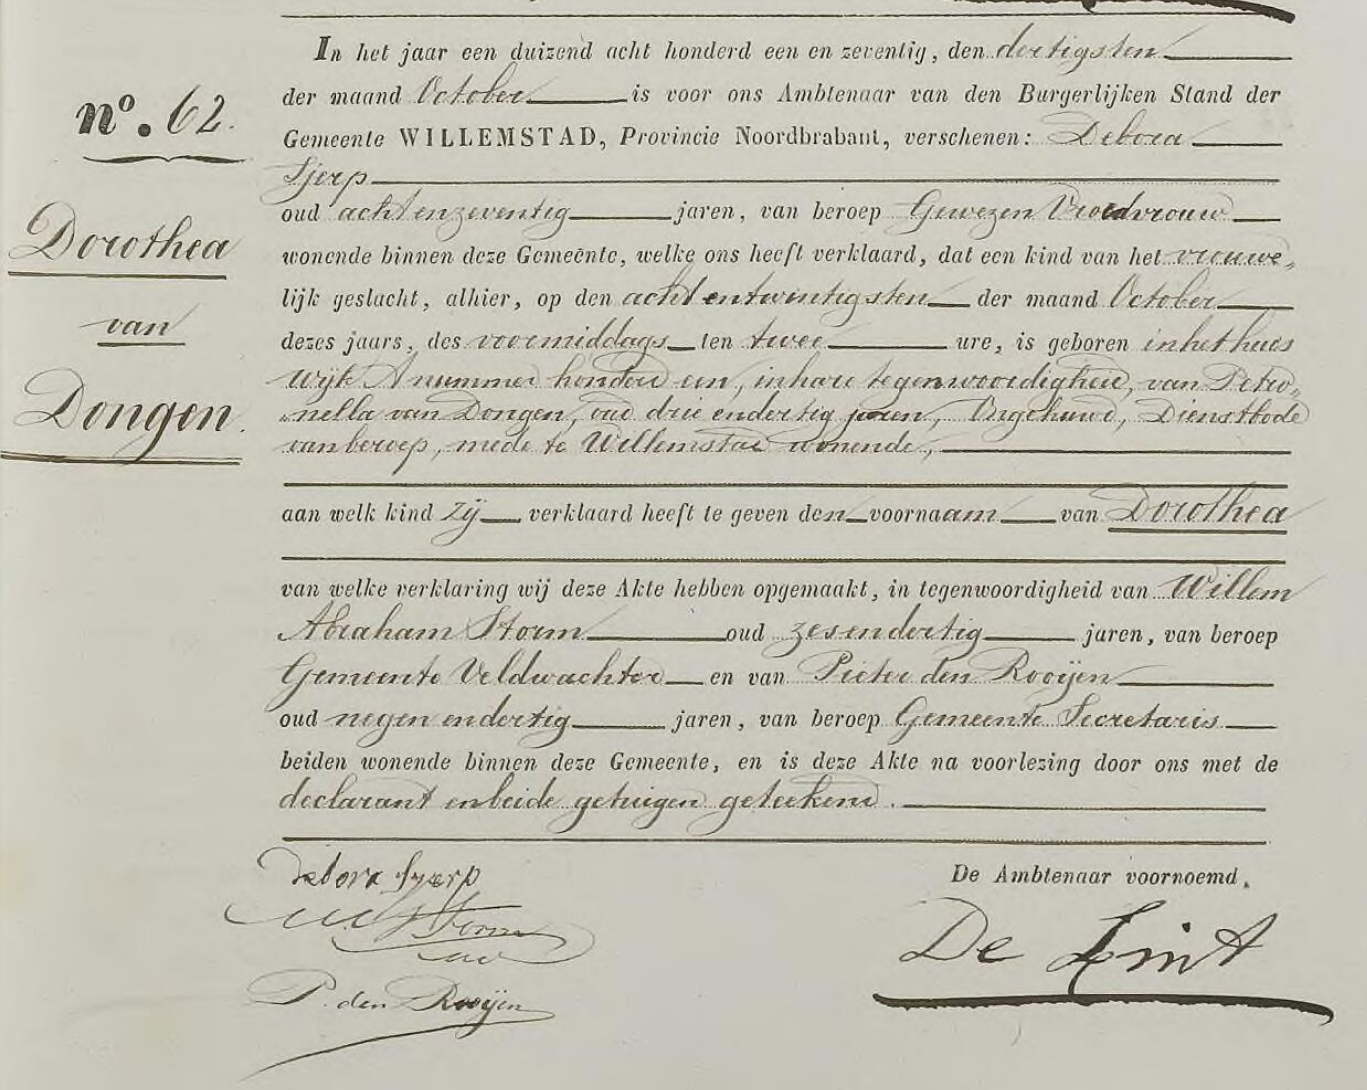 nº. 62.
Dorothea
van
Dongen.
In het jaar een duizend acht honderd een en zeventig, den dertigsten
der maand October is voor ons Ambtenaar van den Burgerlijken Stand der
Gemeente WILLEMSTAD, Provincie Noordbrabant, verschenen: Debora
Sjerp
oud acht en zeventig jaren, van beroep Gewezen Vroedvrouw
wonende binnen deze Gemeente, welke ons heeft verklaard, dat een kind van het vrouwe„
lijk geslacht, alhier, op den acht entwintigsten der maand October
dezes jaars, des voormiddags ten twee ure, is geboren in het huis
Wijk A nummer honderd een, in hare tegenwoordigheid, van Petro„
„nella van Dongen, oud drie endertig jaren, Ongehuwd, Dienstbode
van beroep, mede te Willemstad wonende,
aan welk kind zij verklaard heeft te geven den voornaam van Dorothea
van welke verklaring wij deze Akte hebben opgemaakt, in tegenwoordigheid van Willem
Abraham Storm oud zesendertig jaren, van beroep
Gemeente Veldwachter en van Pieter den Rooijen
oud negen endertig jaren, van beroep Gemeente Secretaris
beiden wonende binnen deze Gemeente, en is deze Akte na voorlezing door ons met de
declarant en beide getuigen geteekend.
Debora Sjerp
De Ambtenaar voornoemd,
Storm
De Lint
P. den Rooijen